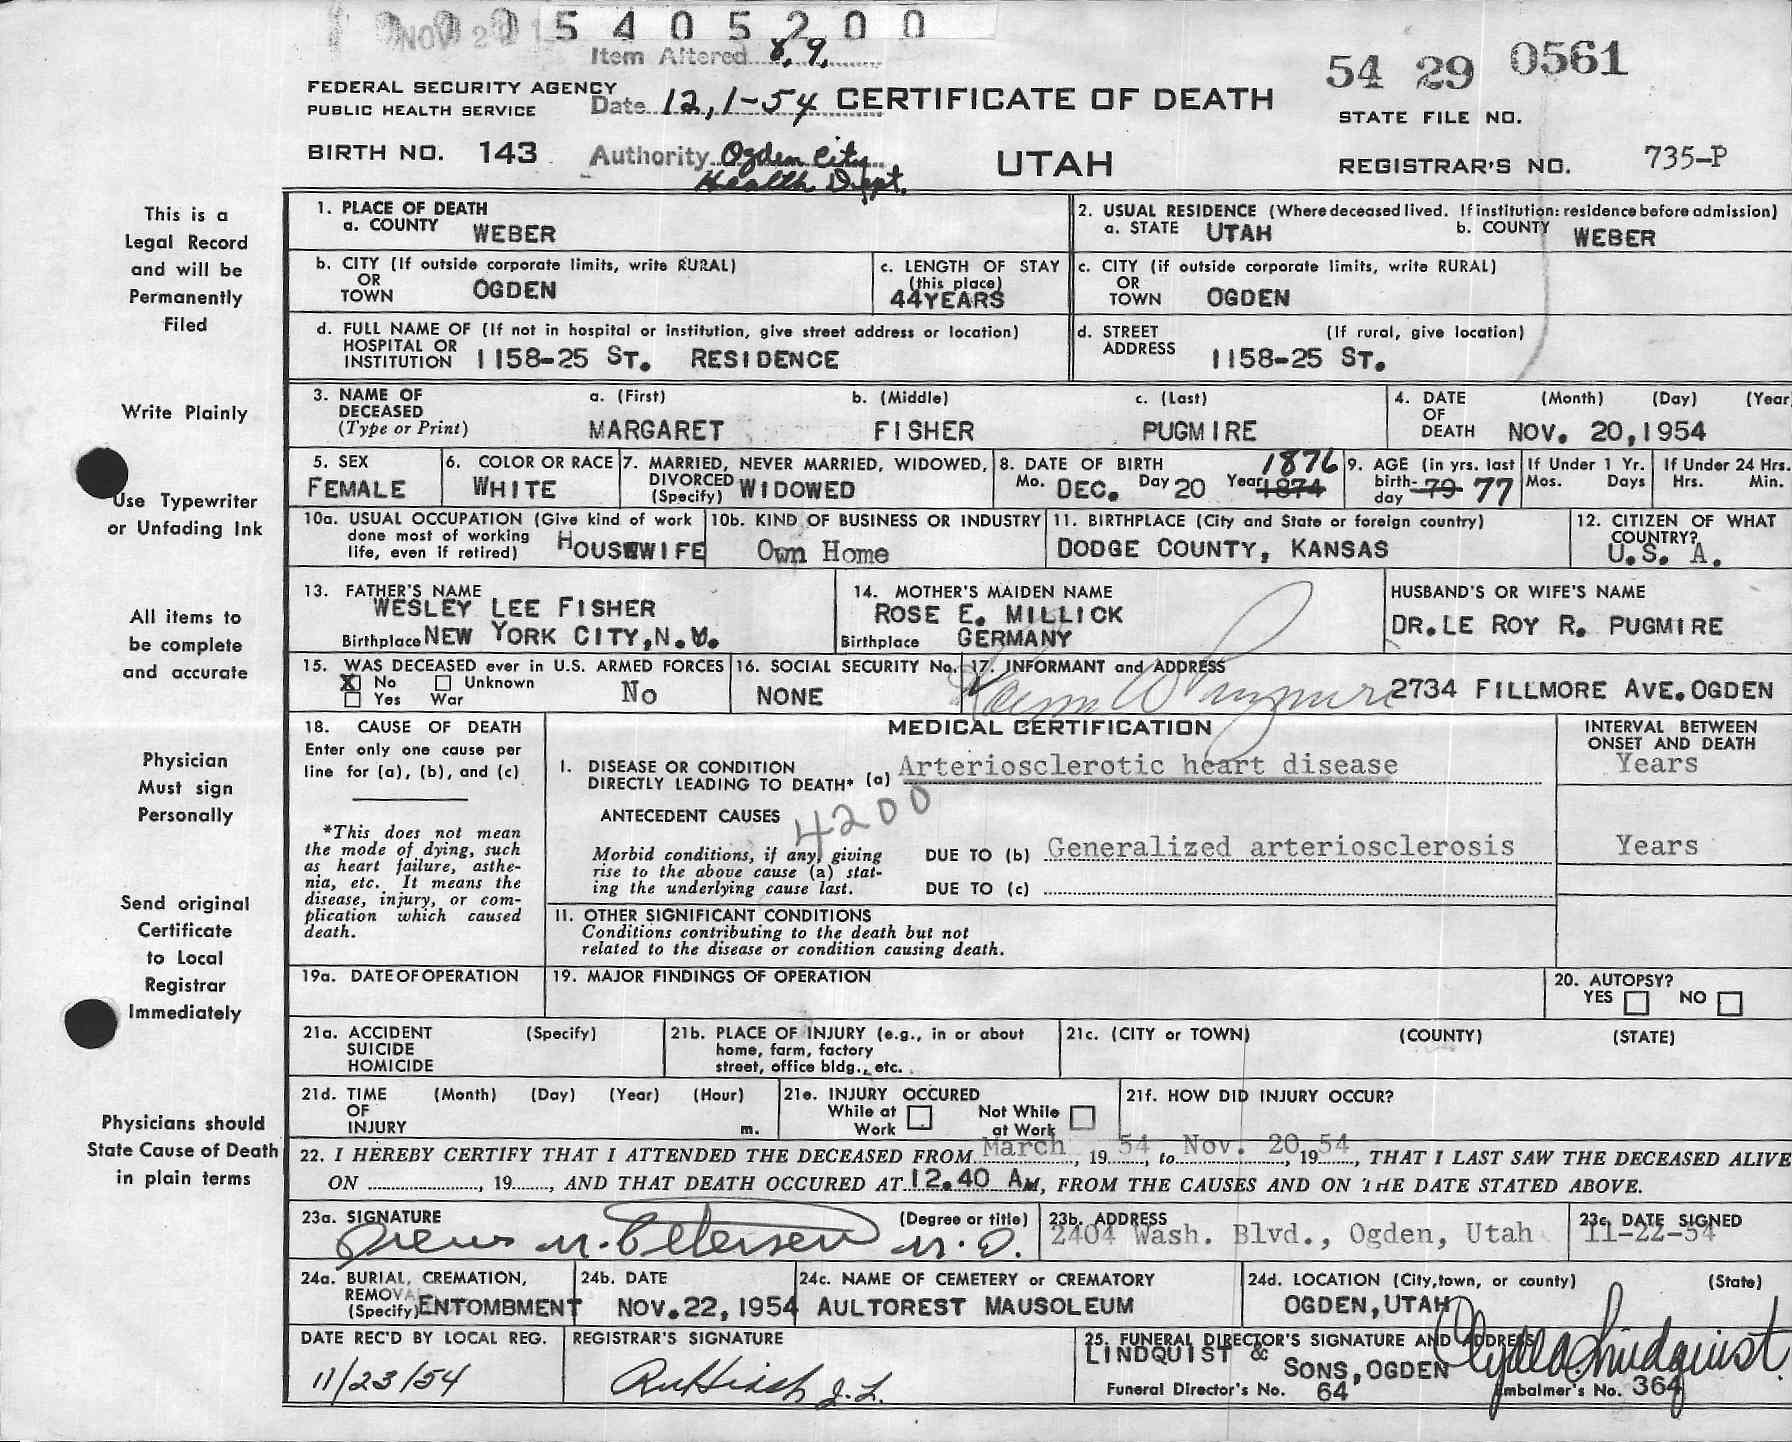 NOV 2
5 4 0 5 2 0 0
Item Altered 8, 9.
54 29 0561
FEDERAL SECURITY AGENCY
PUBLIC HEALTH SERVICE
Date 12, 1-54
CERTIFICATE OF DEATH
STATE FILE NO.
BIRTH NO. 143
Authority Ogden City
Health Dept.
UTAH
REGISTRAR'S NO. 735-P
This is a
Legal Record
and will be
Permanently
Filed
Write Plainly
Use Typewriter
or Unfading Ink
All items to
be complete
and accurate
Physician
Must sign
Personally
Send original
Certificate
to Local
Registrar
Immediately
Physicians should
State Cause of Death
in plain terms
1. PLACE OF DEATH
a. COUNTY WEBER
2. USUAL RESIDENCE (Where deceased lived. If institution: residence before admission)
a. STATE UTAH b. COUNTY WEBER
b. CITY (If outside corporate limits, write RURAL)
OR
TOWN OGDEN
c. LENGTH OF STAY
(this place)
44YEARS
c. CITY (if outside corporate limits, write RURAL)
OR
TOWN OGDEN
d. FULL NAME OF (If not in hospital or institution, give street address or location)
HOSPITAL OR
INSTITUTION 1158-25 ST. RESIDENCE
d. STREET (If rural, give location)
ADDRESS 1158-25 ST.
3. NAME OF
DECEASED
(Type or Print)
a. (First) b. (Middle) c. (Last)
MARGARET FISHER PUGMIRE
4. DATE (Month) (Day) (Year
OF
DEATH NOV. 20,1954
5. SEX
FEMALE
6. COLOR OR RACE
WHITE
7. MARRIED, NEVER MARRIED, WIDOWED,
DIVORCED
(Specify) WIDOWED
8. DATE OF BIRTH 1876
Mo. DEC. Day 20 Year 1874
9. AGE (in yrs. last
birth-
day 79 77
If Under 1 Yr.
Mos. Days
If Under 24 Hrs.
Hrs. Min.
10a. USUAL OCCUPATION (Give kind of work
done most of working
life, even if retired) HOUSEWIFE
10b. KIND OF BUSINESS OR INDUSTRY
Own Home
11. BIRTHPLACE (City and State or foreign country)
DODGE COUNTY, KANSAS
12. CITIZEN OF WHAT
COUNTRY?
U.S. A.
13. FATHER'S NAME
WESLEY LEE FISHER
Birthplace NEW YORK CITY,N.Y.
14. MOTHER'S MAIDEN NAME
ROSE E. MILLICK
Birthplace GERMANY
HUSBAND'S OR WIFE'S NAME
DR.LE ROY R. PUGMIRE
15. WAS DECEASED ever in U.S. ARMED FORCES
X No Unknown
Yes War
No
16. SOCIAL SECURITY No.
NONE
17. INFORMANT and ADDRESS
W Pugmire 2734 FILLMORE AVE.OGDEN
18. CAUSE OF DEATH
Enter only one cause per
line for (a), (b), and (c)
*This does not mean
the mode of dying, such
as heart failure, asthe-
nia, etc. It means the
disease, injury, or com-
plication which caused
death.
MEDICAL CERTIFICATION
INTERVAL BETWEEN
ONSET AND DEATH
I. DISEASE OR CONDITION
DIRECTLY LEADING TO DEATH* (a) Arteriosclerotic heart disease Years
ANTECEDENT CAUSES 4200
Morbid conditions, if any, giving
rise to the above cause (a) stat-
ing the underlying cause last.
DUE TO (b) Generalized arteriosclerosis Years
DUE TO (c)
II. OTHER SIGNIFICANT CONDITIONS
Conditions contributing to the death but not
related to the disease or condition causing death.
19a. DATE OF OPERATION
19. MAJOR FINDINGS OF OPERATION
20. AUTOPSY?
YES NO
21a. ACCIDENT (Specify)
SUICIDE
HOMICIDE
21b. PLACE OF INJURY (e.g., in or about
home, farm, factory
street, office bldg., etc.
21c. (CITY or TOWN) (COUNTY) (STATE)
21d. TIME (Month) (Day) (Year) (Hour)
OF
INJURY m.
21e. INJURY OCCURED
While at Not While
Work at Work
21f. HOW DID INJURY OCCUR?
22. I HEREBY CERTIFY THAT I ATTENDED THE DECEASED FROM March, 1954, to Nov. 20, 1954, THAT I LAST SAW THE DECEASED ALIVE
ON , 19 , AND THAT DEATH OCCURED AT 12.40 AM, FROM THE CAUSES AND ON THE DATE STATED ABOVE.
23a. SIGNATURE (Degree or title)
M. Petersen M.D.
23b. ADDRESS
2404 Wash. Blvd., Ogden, Utah
23c. DATE SIGNED
11-22-54
24a. BURIAL, CREMATION,
REMOVAL
(Specify) ENTOMBMENT
24b. DATE
NOV.22,1954
24c. NAME OF CEMETERY or CREMATORY
AULTOREST MAUSOLEUM
24d. LOCATION (City,town, or county) (State)
OGDEN,UTAH
DATE REC'D BY LOCAL REG.
11/23/54
REGISTRAR'S SIGNATURE
25. FUNERAL DIRECTOR'S SIGNATURE AND ADDRESS
LINDQUIST &
SONS,OGDEN Lindquist
Funeral Director's No. 64 Embalmer's No. 364